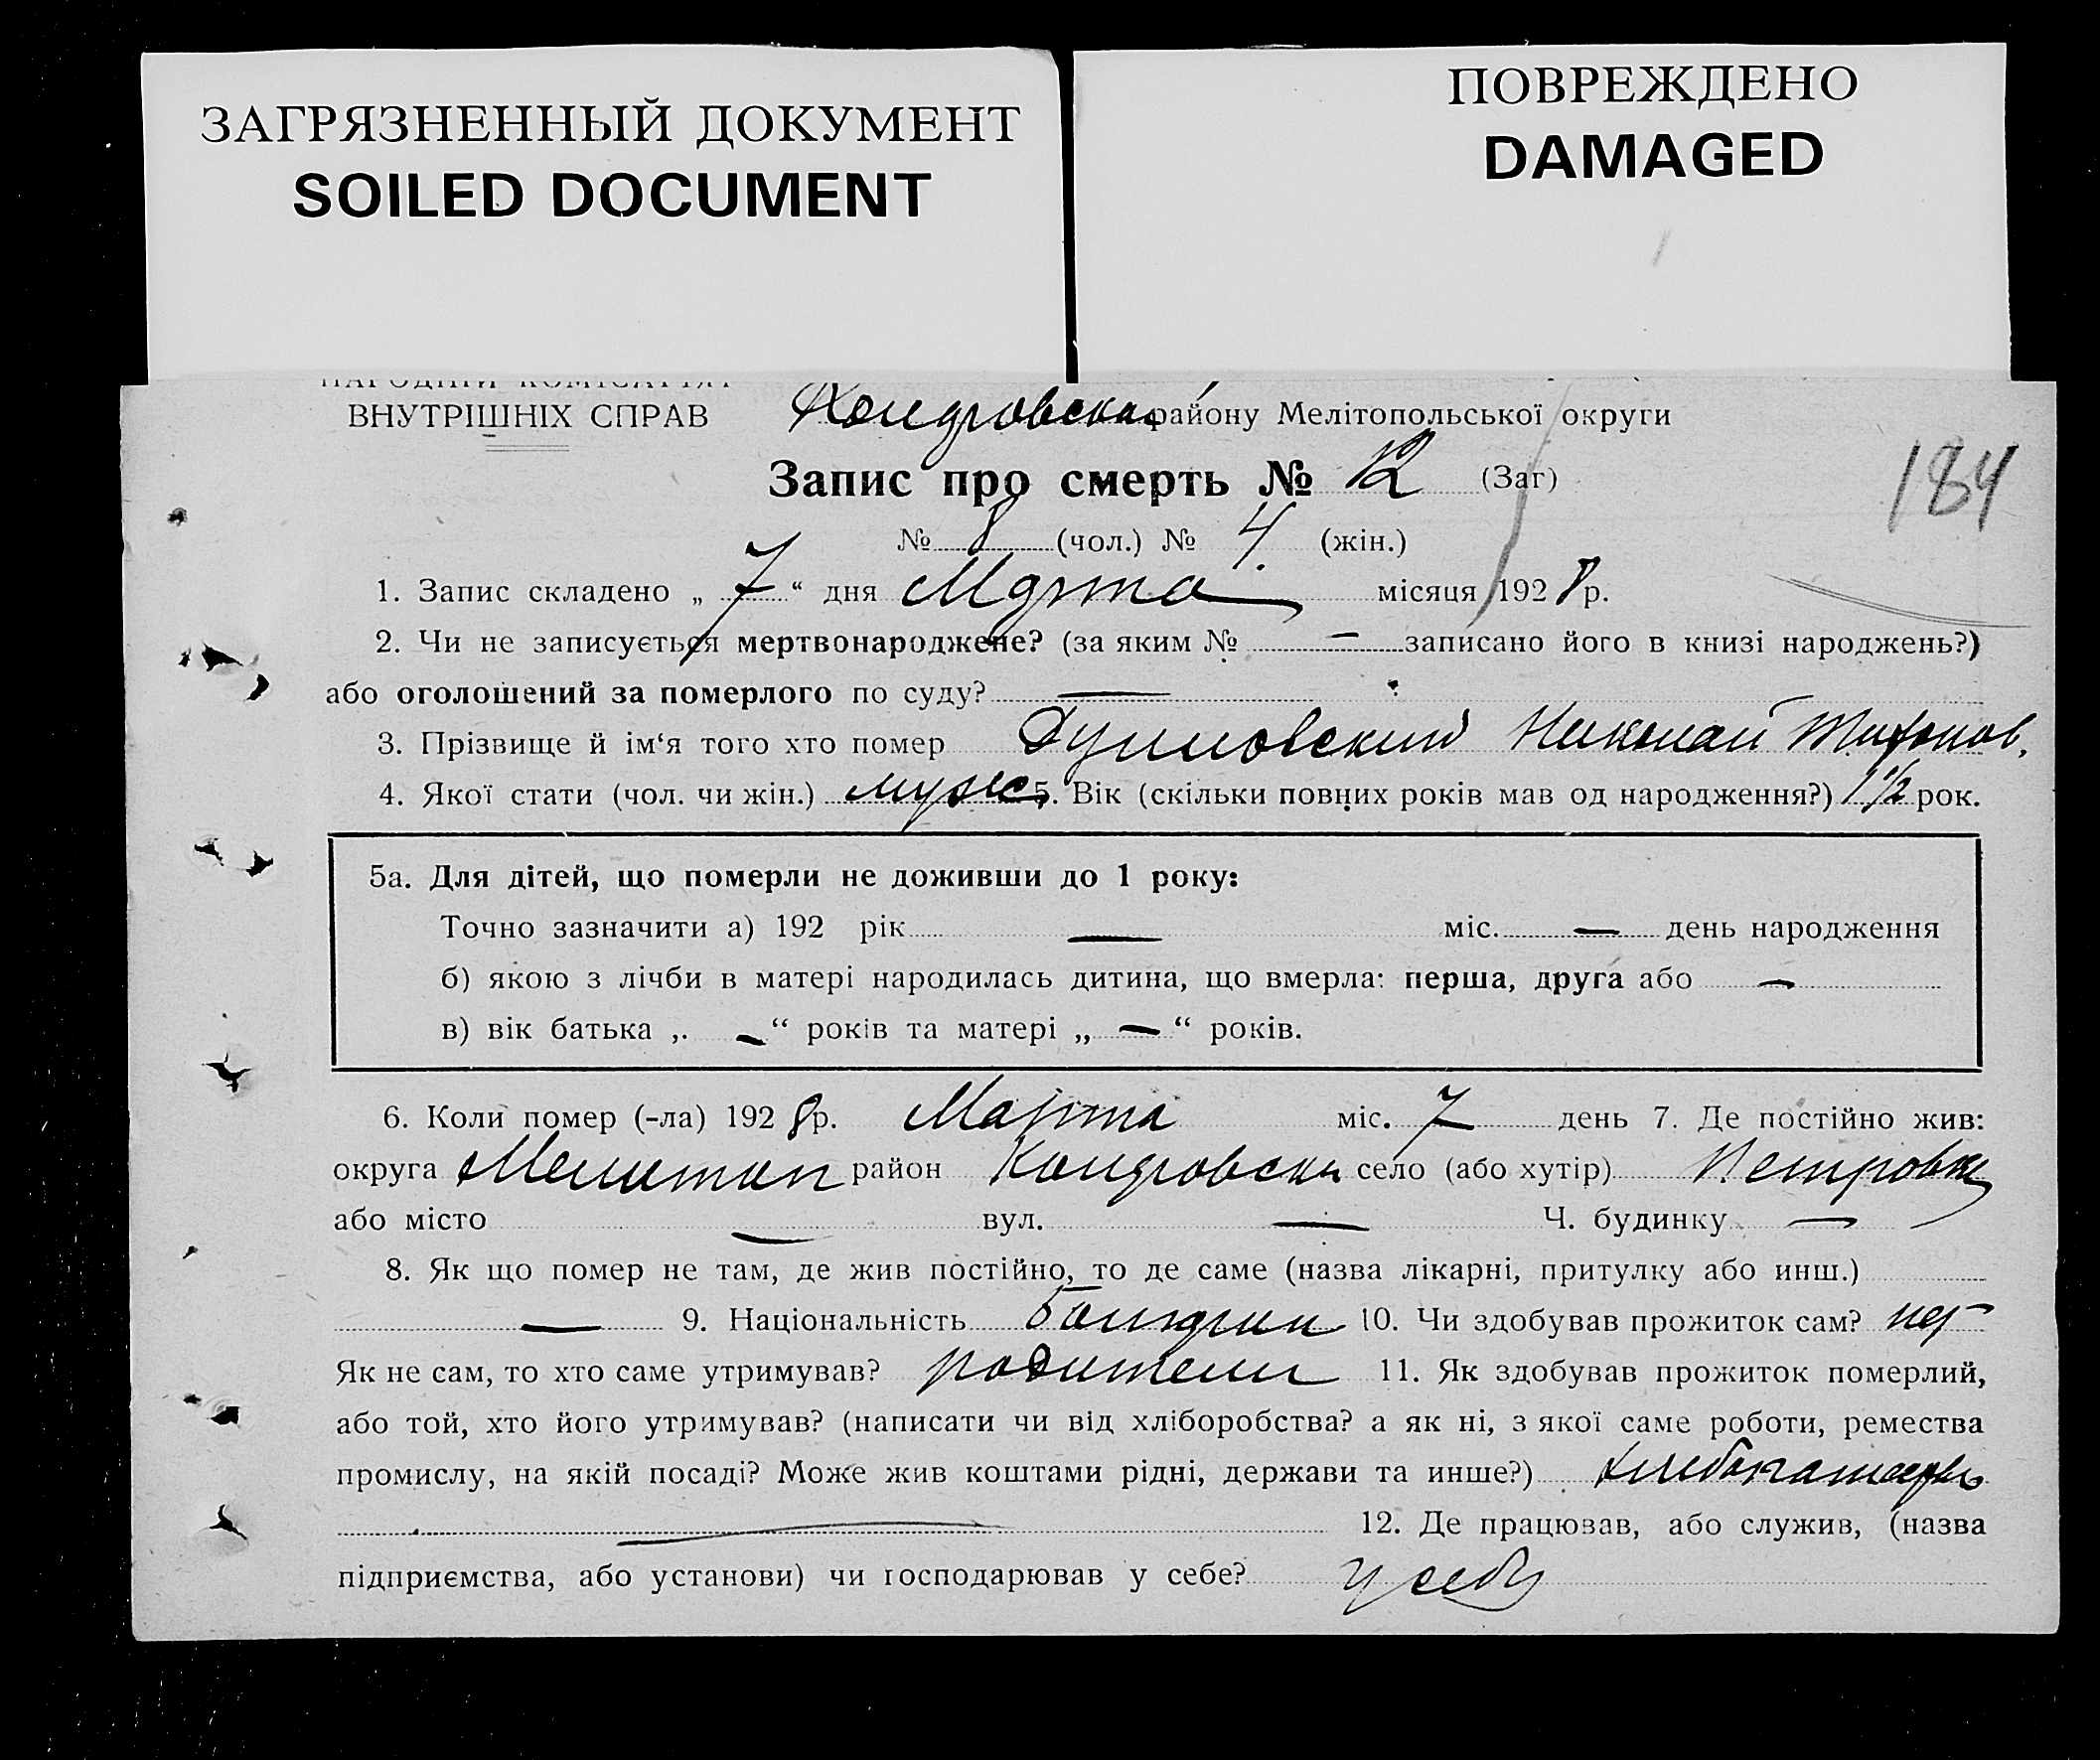 ЗАГРЯЗНЕННЫЙ ДОКУМЕНТ
SOILED DOCUMENT
ПОВРЕЖДЕНО
DAMAGED
НАРОДНІЙ КОМІСАРІЯТ
ВНУТРІШНІХ СПРАВ
району Мелітопольської округи
Запис про смерть № 12 (Заг)
184
№ 8 (чол.) № 4. (жін.)
1. Запис складено „ 7 “ дня Марта місяця 1928 р.
2. Чи не записується мертвонароджене? (за яким № — записано його в книзі народжень?)
або оголошений за померлого по суду? —
3. Прізвище й ім‘я того хто помер Николай
4. Якої стати (чол. чи жін.) муж. 5. Вік (скільки повних років мав од народження?) 1 1/2 рок.
5а. Для дітей, що померли не доживши до 1 року:
Точно зазначити а) 192 рік — міс. — день народження
б) якою з лічби в матері народилась дитина, що вмерла: перша, друга або —
в) вік батька „ — “ років та матері „ — “ років.
6. Коли помер (-ла) 1928 р. Марта міс. 7 день 7. Де постійно жив:
округа Мелитоп район село (або хутір) Петровка
або місто — вул. — Ч. будинку —
8. Як що помер не там, де жив постійно, то де саме (назва лікарні, притулку або инш.)
— 9. Національність 10. Чи здобував прожиток сам? нет
Як не сам, то хто саме утримував? родители 11. Як здобував прожиток померлий,
або той, хто його утримував? (написати чи від хліборобства? а як ні, з якої саме роботи, ремества
промислу, на якій посаді? Може жив коштами рідні, держави та инше?)
— 12. Де працював, або служив, (назва
підприємства, або установи) чи господарював у себе? у себя